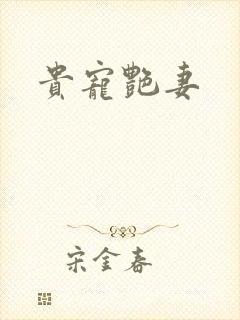 貴寵艷妻
宋金春